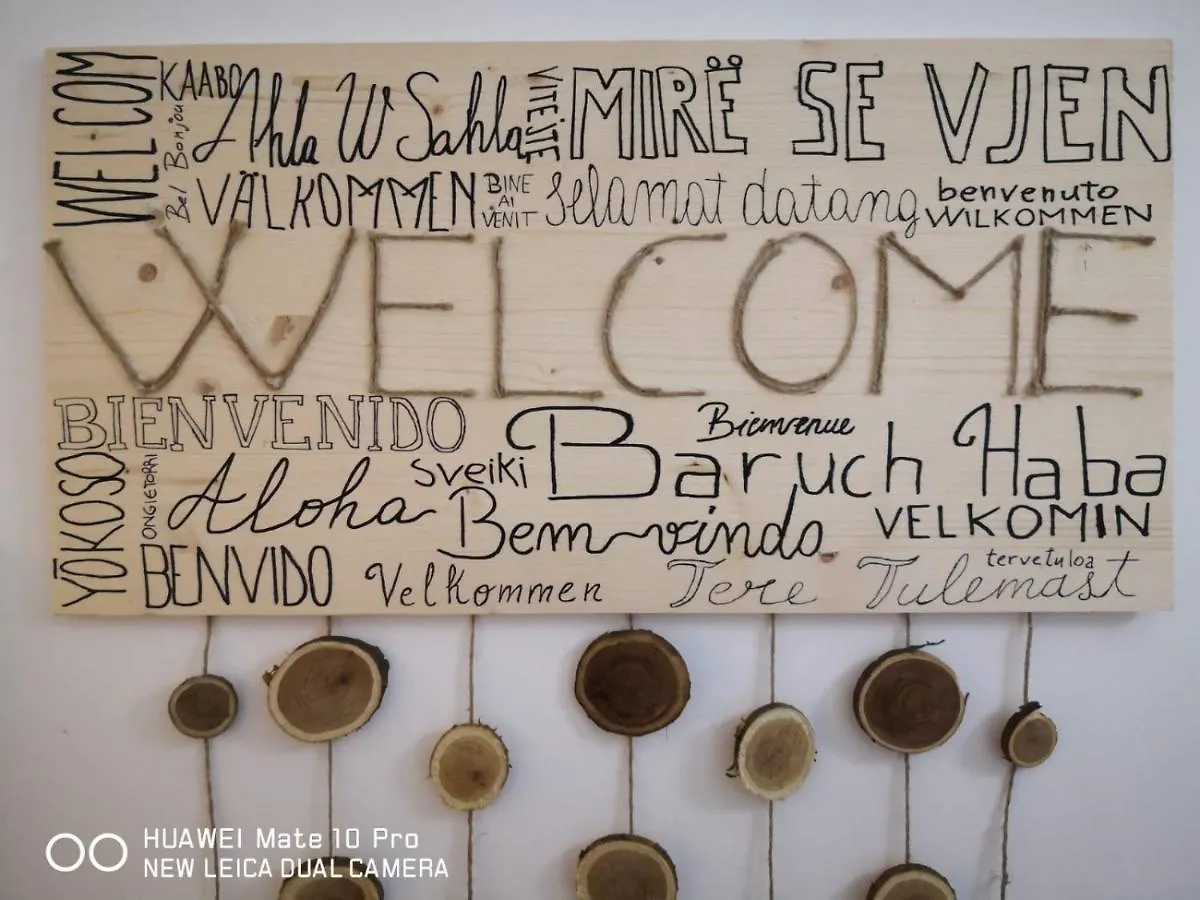 WELCOM
KAABO
Bel Bonjou
Ahla W Sahla
MIRË SE VJEN
VÄLKOMMEN
BINE
AI
VENIT
Selamat datang
benvenuto
WILKOMMEN
WELCOME
BIENVENIDO
Bienvenue
Baruch Haba
YŌKOSO
ONGIETORRI
Aloha
Sveiki
Bem-vindo
VELKOMIN
BENVIDO
Velkommen
Tere Tulemast
tervetuloa
HUAWEI Mate 10 Pro
NEW LEICA DUAL CAMERA